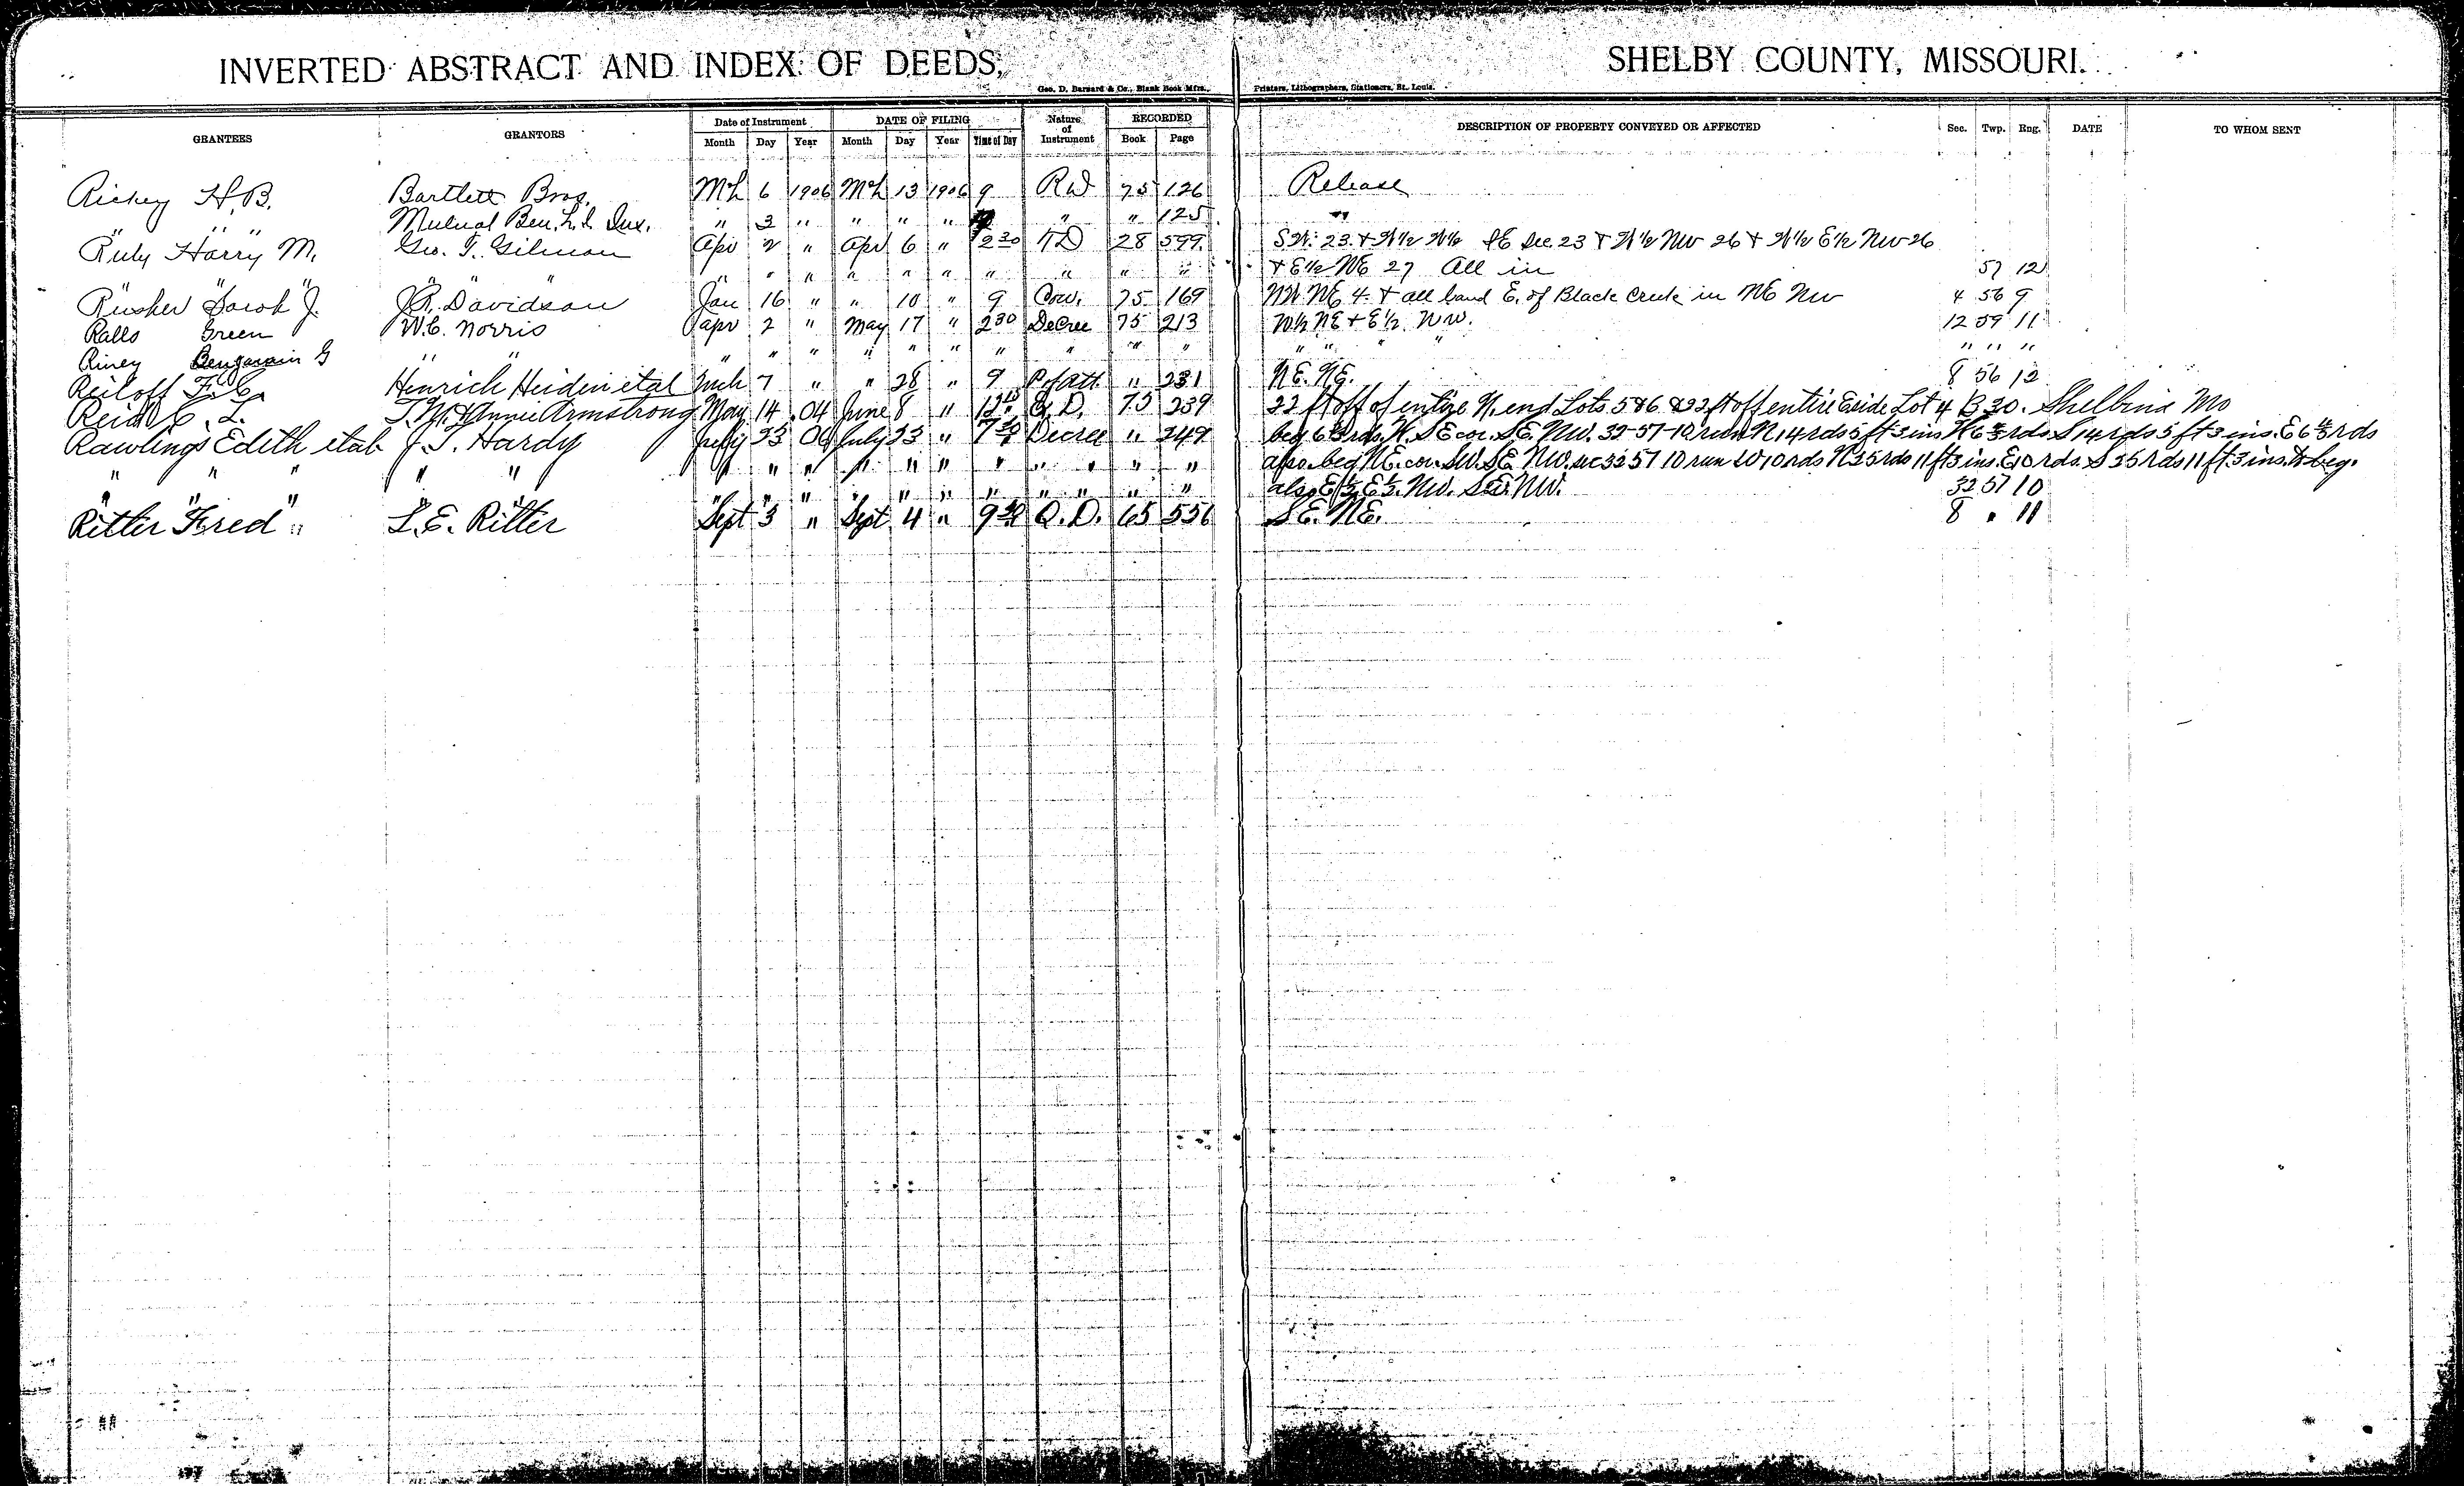 INVERTED ABSTRACT AND INDEX OF DEEDS, SHELBY COUNTY, MISSOURI.
Geo. D. Barnard & Co., Blank Book Mfrs., Printers, Lithographers, Stationers, St. Louis.
GRANTEES GRANTORS Date of Instrument DATE OF FILING Nature of Instrument RECORDED DESCRIPTION OF PROPERTY CONVEYED OR AFFECTED Sec. Twp. Rng. DATE TO WHOM SENT
Month Day Year Month Day Year Time of Day Book Page
Rickey H.B. Bartlett Bros. Mch 6 1906 Mch 13 1906 9 RD 75 126 Release
" " " Mutual Ben. L. I. Inx. " 3 " " " " " " 125 "
Ruly Harry M. Geo. T. Gilman Apr 2 " Apr 6 " 2 30 TD 28 599 23 & N½ SE Sec. 23 & W½ NW 26 & W½ E½ NW 26
" " " " " " " " " " " " " & E½ NE 27 All in 57 12
Rusher Jacob J. J.R. Davidson Jan 16 " " 10 " 9 75 169 NW NE 4 & all land E. of Black Creek in NE NW 4 56 9
Ralls Green W.C. Norris Apr 2 " May 17 " 2 30 Decree 75 213 W½ NE & E½ NW. 12 59 11
Riney Benjamin G " " " " " " " " " " " " " " " " " "
Reiloff F.C. Henrich Heiden etal Mch 7 " " 28 " 9 P of Att. " 231 NE. NE. 8 56 12
Reid C. L. T.M. & Annie Armstrong May 14 04 June 8 " Q.D. 75 239 22 ft off of entire N. end Lots 5 & 6 & 32 ft off entire E side Lot 4 B 30. Shelbina Mo
Rawlings Edith etal J. T. Hardy July 23 06 July 23 " Decree " 249 beg 6⅔ rds. W. SE cor. SE. NW. 32-57-10 run N 14 rds 5 ft 3 ins W 6⅔ rds S 14 rds 5 ft 3 ins. E 6⅔ rds
" " " " " " " " " " " " " " " also beg NE. cor. SW. SE NW. sec 32 57 10 run W 10 rds N 25 rds 11 ft 3 ins. E 10 rds. S 25 rds 11 ft. 3 ins. to beg.
" " " " " " " " " " " " " " also E½ E½ NW. SE NW. 32 57 10
Ritter Fred L.E. Ritter Sept 3 " Sept 4 " 9 30 Q.D. 65 556 SE. NE. 8 " 11